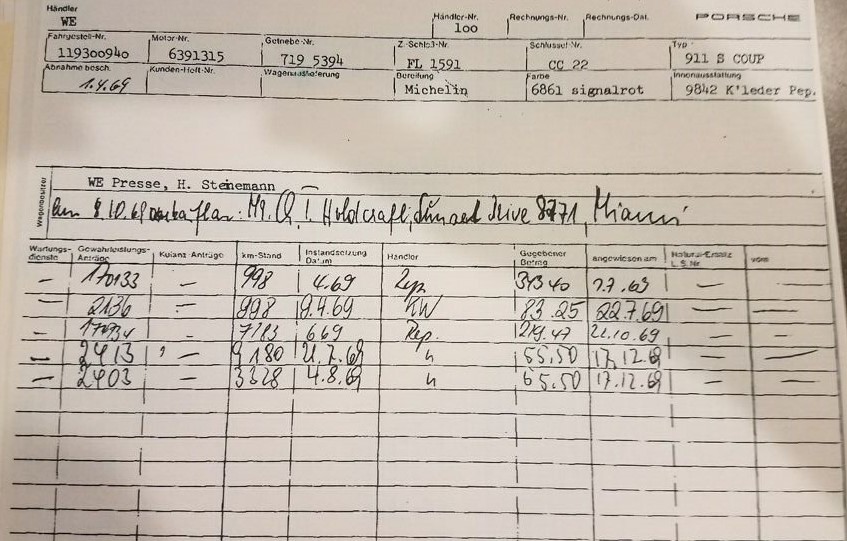 Händler
WE
Händler-Nr. 100
Rechnungs-Nr.
Rechnungs-Dat.
PORSCHE
Fahrgestell-Nr. 119300940
Motor-Nr. 6391315
Getriebe-Nr. 719 5394
Z.-Schloß-Nr. FL 1591
Schlüssel-Nr. CC 22
Typ 911 S COUP
Abnahme besch. 1.4.69
Kunden-Heft-Nr.
Wagenauslieferung
Bereifung Michelin
Farbe 6861 signalrot
Innenausstattung 9842 K'leder Pep.
Wagenbesitzer
WE Presse, H. Steinemann
am 8.10.69 Mr. Q. I. Holdcraft, Sunset Drive 8771, Miami
Wartungsdienste Gewährleistungs-Anträge Kulanz-Anträge km-Stand Instandsetzung Datum Händler Gegebener Betrag angewiesen am Natural-Ersatz L.S.Nr. vom
— 170133 — 998 4.69 Rep. 343 40 7.7.69 —
— 2136 — 998 9.4.69 KW 83.25 22.7.69 — —
— — 7183 669 Rep. 219.47 21.10.69 — —
— 2413 — 9180 21.7.69 " 55.50 17.12.69 — —
— 2403 — 3328 4.8.69 " 65.50 17.12.69 — —